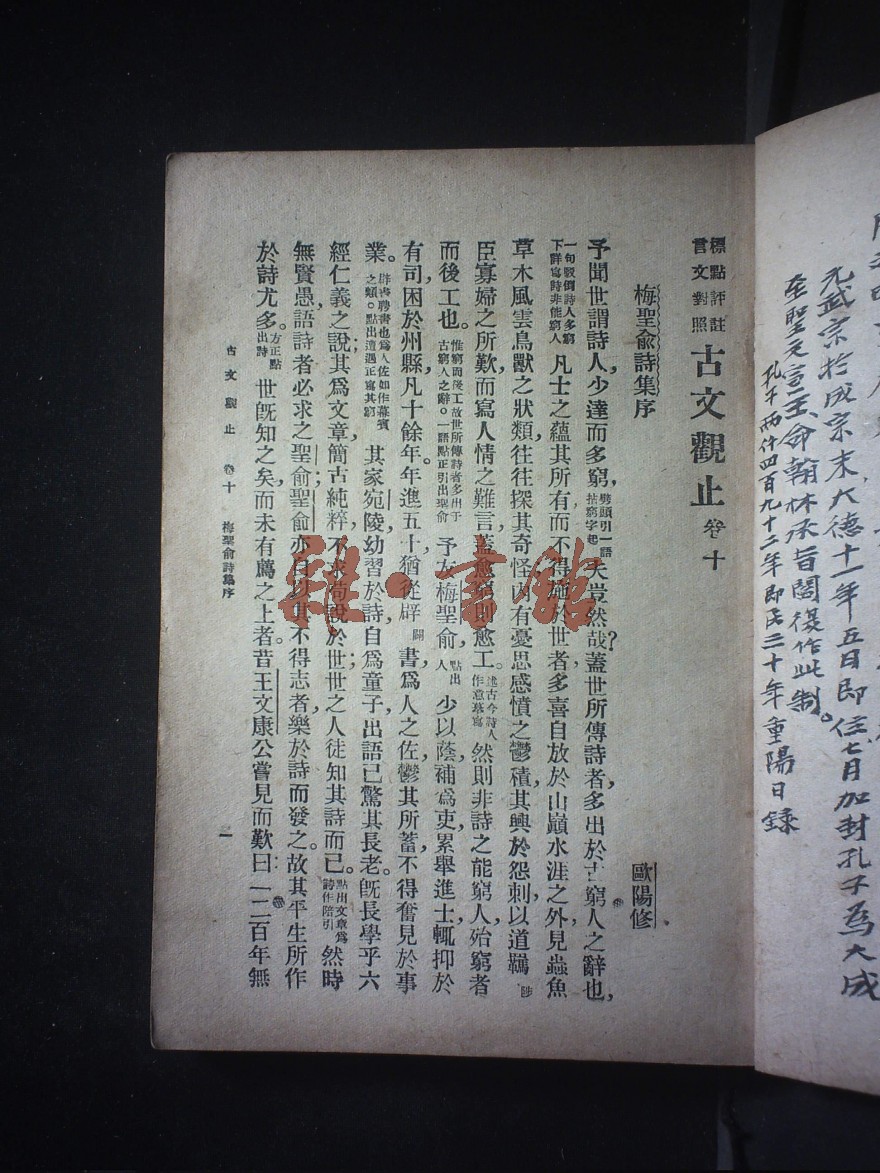 元武宗於成宗末大德十一年五日即位七月加封孔子為大成
至聖文宣王命翰林承旨閻復作此制。
孔子兩仟四百九十二年即民三十年重陽日錄
標點評註
言文對照
古文觀止 卷十
梅聖俞詩集序 歐陽修
予聞世謂詩人少達而多窮，劈頭引一語拈窮字起夫豈然哉？蓋世所傳詩者多出於古窮人之辭也，
一句駁倒詩人多窮下詳寫詩非能窮人凡士之蘊其所有而不得施於世者，多喜自放於山巔水涯之外，見蟲魚
草木風雲鳥獸之狀類，往往探其奇怪，內有憂思感憤之鬱積，其興於怨刺，以道羈
臣寡婦之所歎，而寫人情之難言，蓋愈窮則愈工。述古今詩人作意摹寫然則非詩之能窮人，殆窮者
而後工也。惟窮而後工故世所傳詩者多出于古窮人之辭。一語點正引出聖俞予友梅聖俞，點出人少以蔭補爲吏，累舉進士，輒抑於
有司，困於州縣，凡十餘年。年逾五十，猶從辟闢書，爲人之佐，鬱其所蓄，不得奮見於事
業。辟書聘書也爲人佐如作幕賓之類。點出遭遇正寫其窮其家宛陵，幼習於詩，自爲童子，出語已驚其長老。旣長，學乎六
經仁義之說，其爲文章，簡古純粹，不求苟說於世；世之人徒知其詩而已。點出文章爲詩作陪引然時
無賢愚，語詩者必求之聖俞；聖俞亦自以其不得志者，樂於詩而發之。故其平生所作，
於詩尤多。方正點出詩世旣知之矣，而未有薦之上者。昔王文康公嘗見而歎曰：二百年無
古文觀止 卷十 梅聖俞詩集序 一
雜·書館